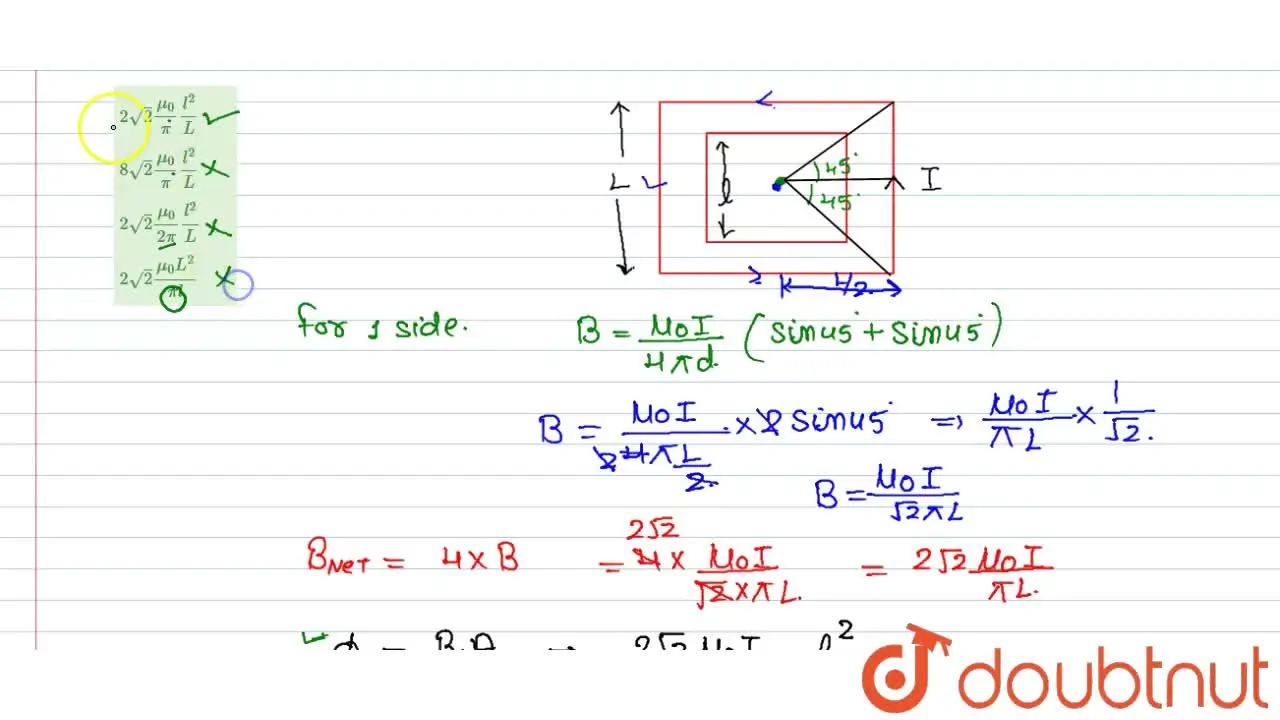 2√2 μ₀/π l²/L ✓
8√2 μ₀/π l²/L ×
2√2 μ₀/2π l²/L ×
2√2 μ₀L²/πl ×
L
l
45°
45°
I
L/2
for 1 side.
B = μ₀I/4πd (sin45° + sin45°)
B = μ₀I/(4π L/2) × 2 sin45° ⇒ μ₀I/πL × 1/√2.
2
B = μ₀I/√2πL
2√2
B_Net = 4×B = 4× μ₀I/(√2×πL.) = 2√2 μ₀I/πL.
ϕ = B.A ⇒ 2√2 μ₀I l²
doubtnut